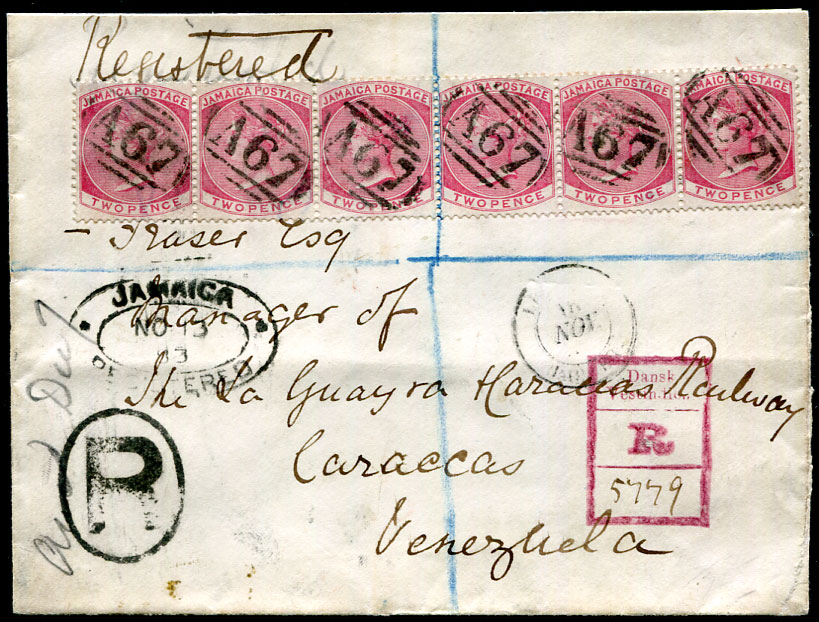 Registered
JAMAICA POSTAGE JAMAICA POSTAGE JAMAICA POSTAGE JAMAICA POSTAGE JAMAICA POSTAGE JAMAICA POSTAGE
A67 A67 A67 A67 A67 A67
TWO PENCE TWO PENCE TWO PENCE TWO PENCE TWO PENCE TWO PENCE
— Fraser Esq
JAMAICA
NO 13
REGISTERED
Manager of
NOV
The La Guayra Caraccas Railway
Dansk
Vestindien
R
5779
Caraccas
Venezuela
R